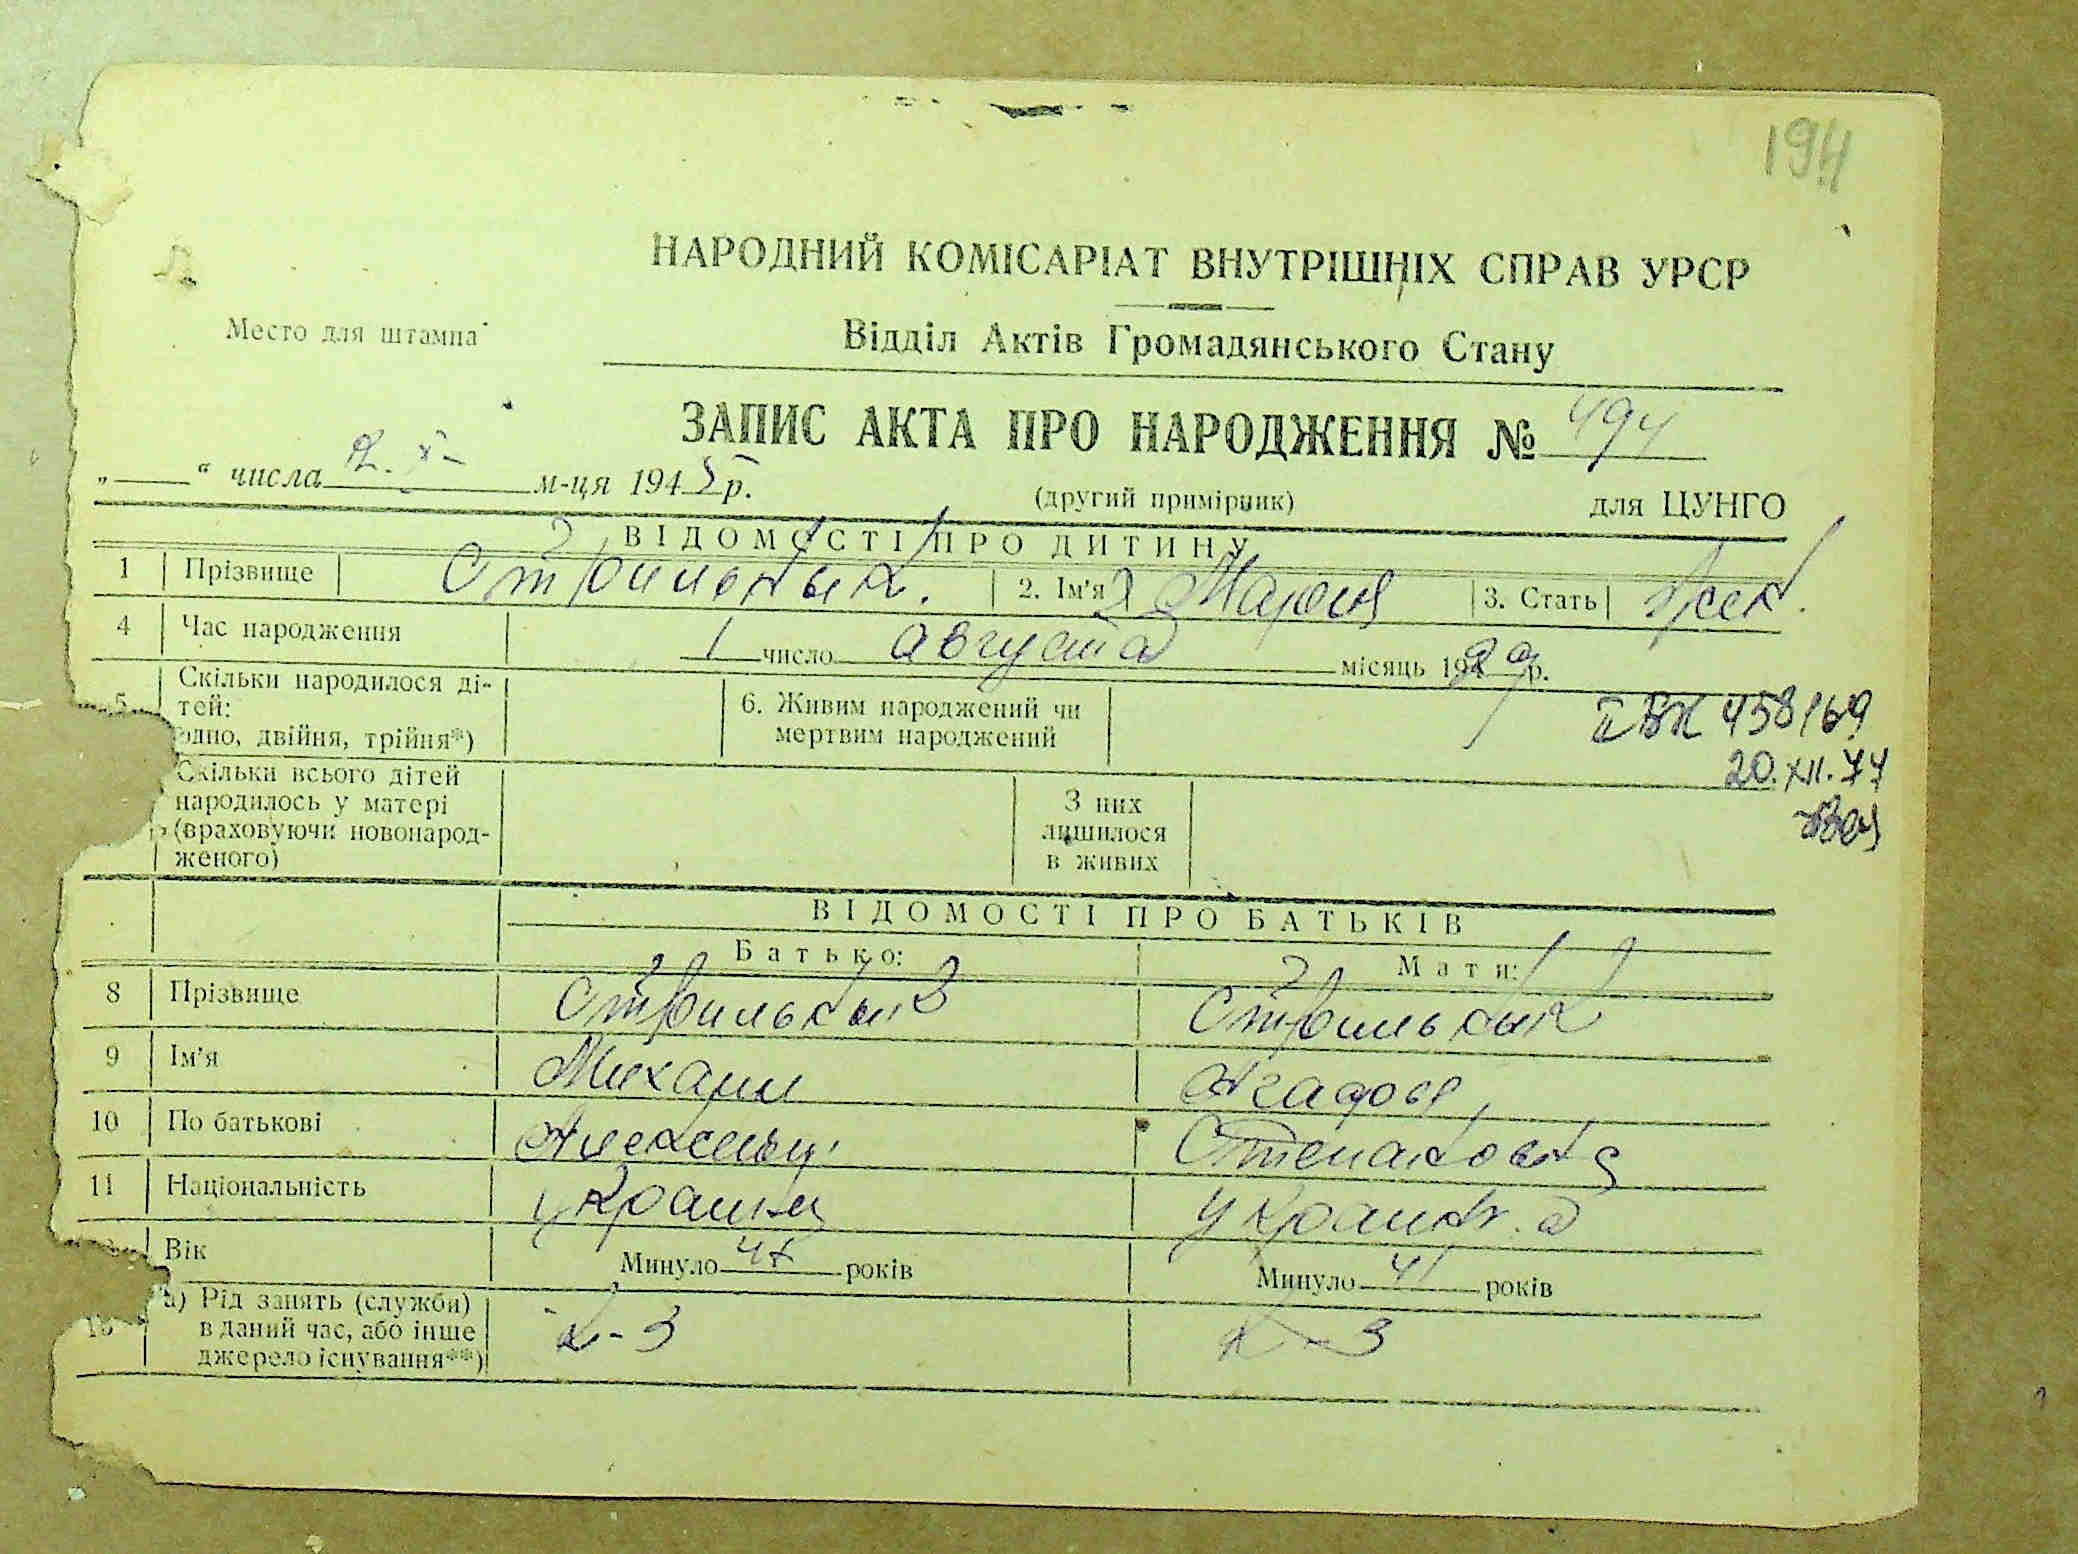 194
НАРОДНИЙ КОМІСАРІАТ ВНУТРІШНІХ СПРАВ УРСР
Место для штампа
Відділ Актів Громадянського Стану
ЗАПИС АКТА ПРО НАРОДЖЕННЯ № 494
„ “ числа 12. X м-ця 1945 р.
(другий примірник) для ЦУНГО
ВІДОМОСТІ ПРО ДИТИНУ
1 Прізвище 2. Ім'я Мария 3. Стать жен.
4 Час народження 1 число августа місяць 1929 р.
5 Скільки народилося ді-
тей:
одно, двійня, трійня*)
6. Живим народжений чи
мертвим народжений
458/69
20.XII.77
Скільки всього дітей
народилось у матері
(враховуючи новонарод-
женого)
З них
лишилося
в живих
ВІДОМОСТІ ПРО БАТЬКІВ
Батько: Мати:
8 Прізвище
9 Ім'я Михаил Агафья
10 По батькові Степановна
11 Національність украинец
Вік Минуло років Минуло 41 років
а) Рід занять (служби)
в даний час, або інше
джерело існування**)
к-з к-з